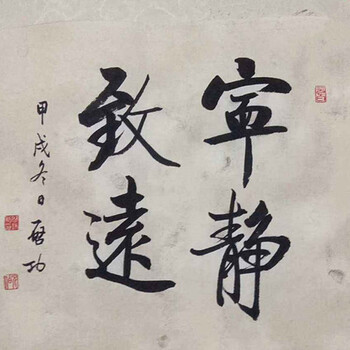 寧靜
致遠
甲戌冬日啟功